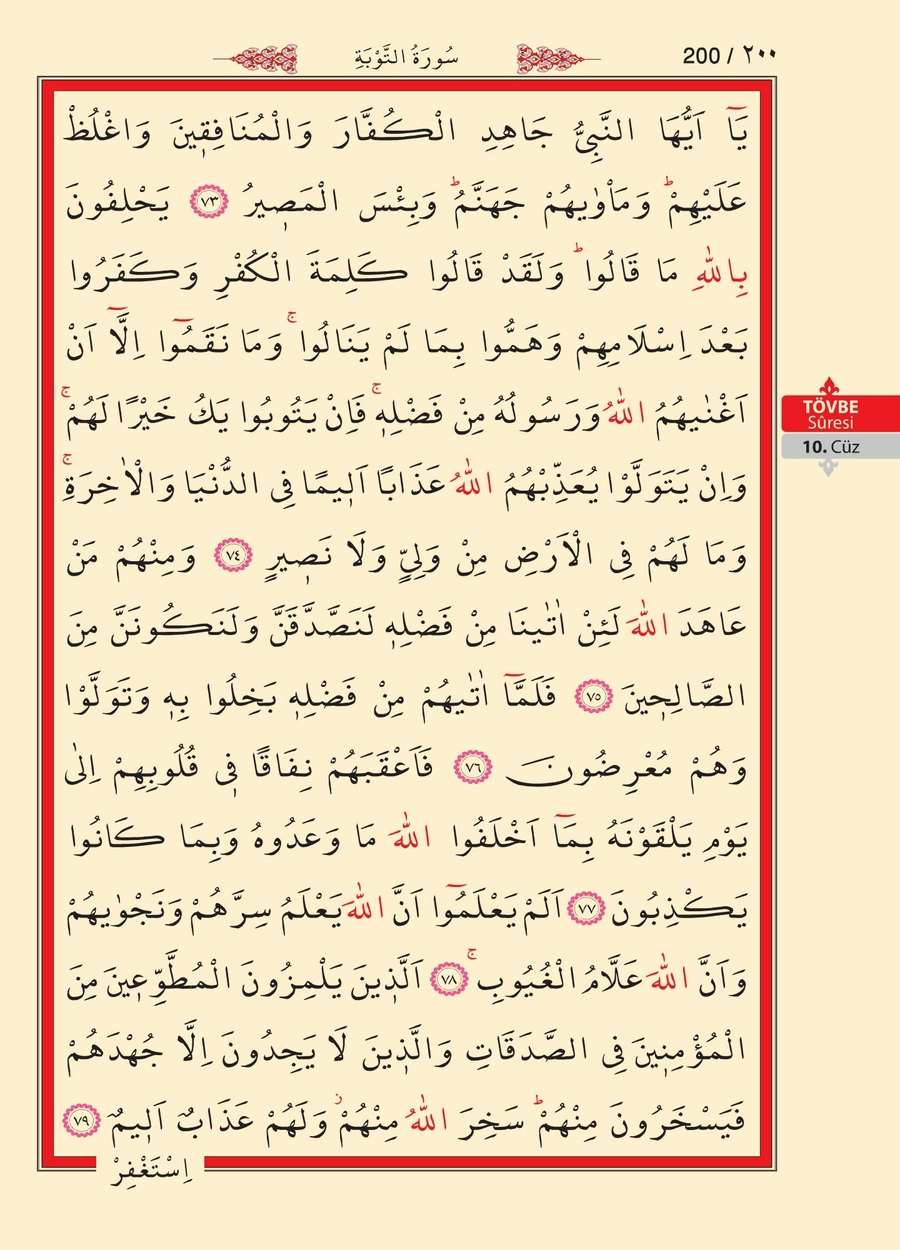 200 / ٢٠٠
سُورَةُ التَّوْبَةِ
يَٓا اَيُّهَا النَّبِيُّ جَاهِدِ الْكُفَّارَ وَالْمُنَافِق۪ينَ وَاغْلُظْ
عَلَيْهِمْۜ وَمَأْوٰيهُمْ جَهَنَّمُۜ وَبِئْسَ الْمَص۪يرُ ﴿٧٣﴾ يَحْلِفُونَ
بِاللّٰهِ مَا قَالُواۜ وَلَقَدْ قَالُوا كَلِمَةَ الْكُفْرِ وَكَفَرُوا
بَعْدَ اِسْلَامِهِمْ وَهَمُّوا بِمَا لَمْ يَنَالُواۚ وَمَا نَقَمُٓوا اِلَّٓا اَنْ
اَغْنٰيهُمُ اللّٰهُ وَرَسُولُهُ مِنْ فَضْلِه۪ۚ فَاِنْ يَتُوبُوا يَكُ خَيْرًا لَهُمْۚ
وَاِنْ يَتَوَلَّوْا يُعَذِّبْهُمُ اللّٰهُ عَذَابًا اَل۪يمًا فِي الدُّنْيَا وَالْاٰخِرَةِۚ
وَمَا لَهُمْ فِي الْاَرْضِ مِنْ وَلِيٍّ وَلَا نَص۪يرٍ ﴿٧٤﴾ وَمِنْهُمْ مَنْ
عَاهَدَ اللّٰهَ لَئِنْ اٰتٰينَا مِنْ فَضْلِه۪ لَنَصَّدَّقَنَّ وَلَنَكُونَنَّ مِنَ
الصَّالِح۪ينَ ﴿٧٥﴾ فَلَمَّٓا اٰتٰيهُمْ مِنْ فَضْلِه۪ بَخِلُوا بِه۪ وَتَوَلَّوْا
وَهُمْ مُعْرِضُونَ ﴿٧٦﴾ فَاَعْقَبَهُمْ نِفَاقًا ف۪ي قُلُوبِهِمْ اِلٰى
يَوْمِ يَلْقَوْنَهُ بِمَٓا اَخْلَفُوا اللّٰهَ مَا وَعَدُوهُ وَبِمَا كَانُوا
يَكْذِبُونَ ﴿٧٧﴾ اَلَمْ يَعْلَمُٓوا اَنَّ اللّٰهَ يَعْلَمُ سِرَّهُمْ وَنَجْوٰيهُمْ
وَاَنَّ اللّٰهَ عَلَّامُ الْغُيُوبِۚ ﴿٧٨﴾ اَلَّذ۪ينَ يَلْمِزُونَ الْمُطَّوِّع۪ينَ مِنَ
الْمُؤْمِن۪ينَ فِي الصَّدَقَاتِ وَالَّذ۪ينَ لَا يَجِدُونَ اِلَّا جُهْدَهُمْ
فَيَسْخَرُونَ مِنْهُمْۜ سَخِرَ اللّٰهُ مِنْهُمْۘ وَلَهُمْ عَذَابٌ اَل۪يمٌ ﴿٧٩﴾
اِسْتَغْفِرْ
TÖVBE
Sûresi
10. Cüz